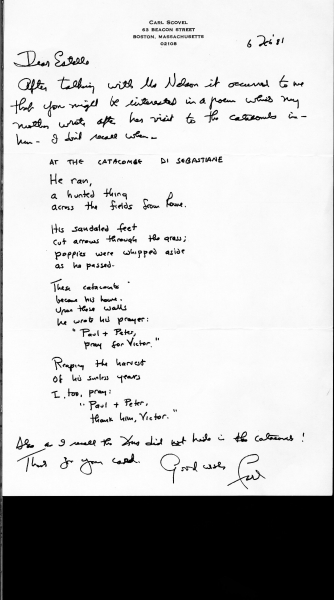 CARL SCOVEL
63 BEACON STREET
BOSTON, MASSACHUSETTS
02108
6 Feb 81
Dear Estelle
After talking with Ms Nelson it occurred to me
that you might be interested in a poem which my
mother wrote after her visit to the catacombs in -
hm - I don't recall when -
AT THE CATACOMBE DI SEBASTIANE
He ran,
a hunted thing
across the fields from Rome.
His sandaled feet
cut arrows through the grass;
poppies were whipped aside
as he passed.
These catacombs
became his home.
Upon these walls
he wrote his prayer:
"Paul + Peter,
pray for Victor."
Reaping the harvest
Of his sunless years
I, too, pray:
"Paul + Peter,
thank him, Victor."
Also as I recall the did not hide in the catacombs!
Thanks for your card.
Good wishes Carl